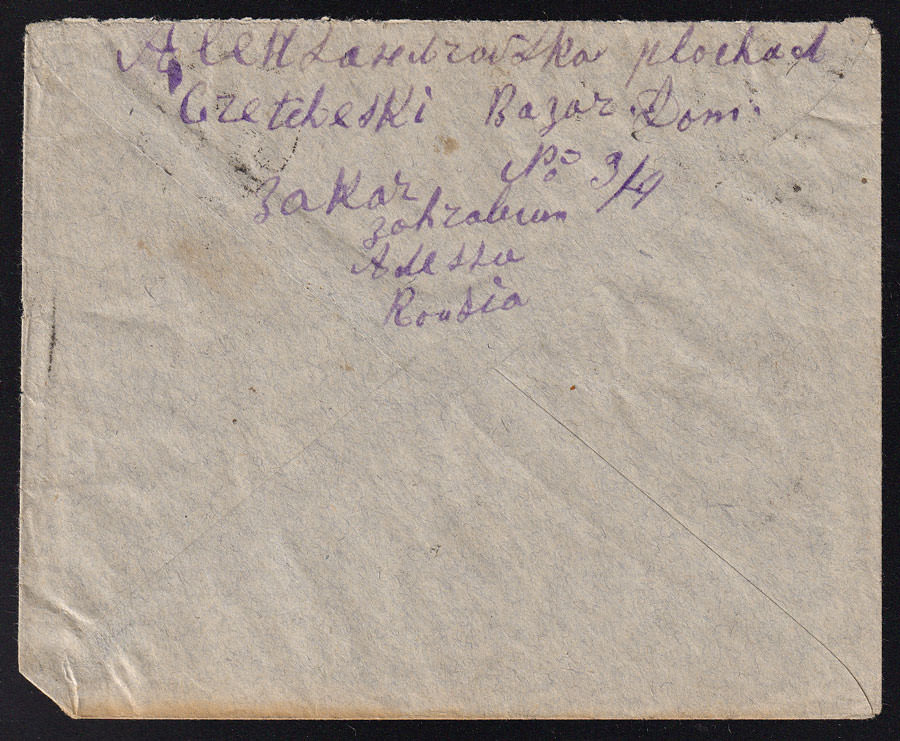 Alexsandrovska plochad
Gretcheski Bazar. Dom.
No 3/4
Zakar
Zohrabian
Adessa
Roussia